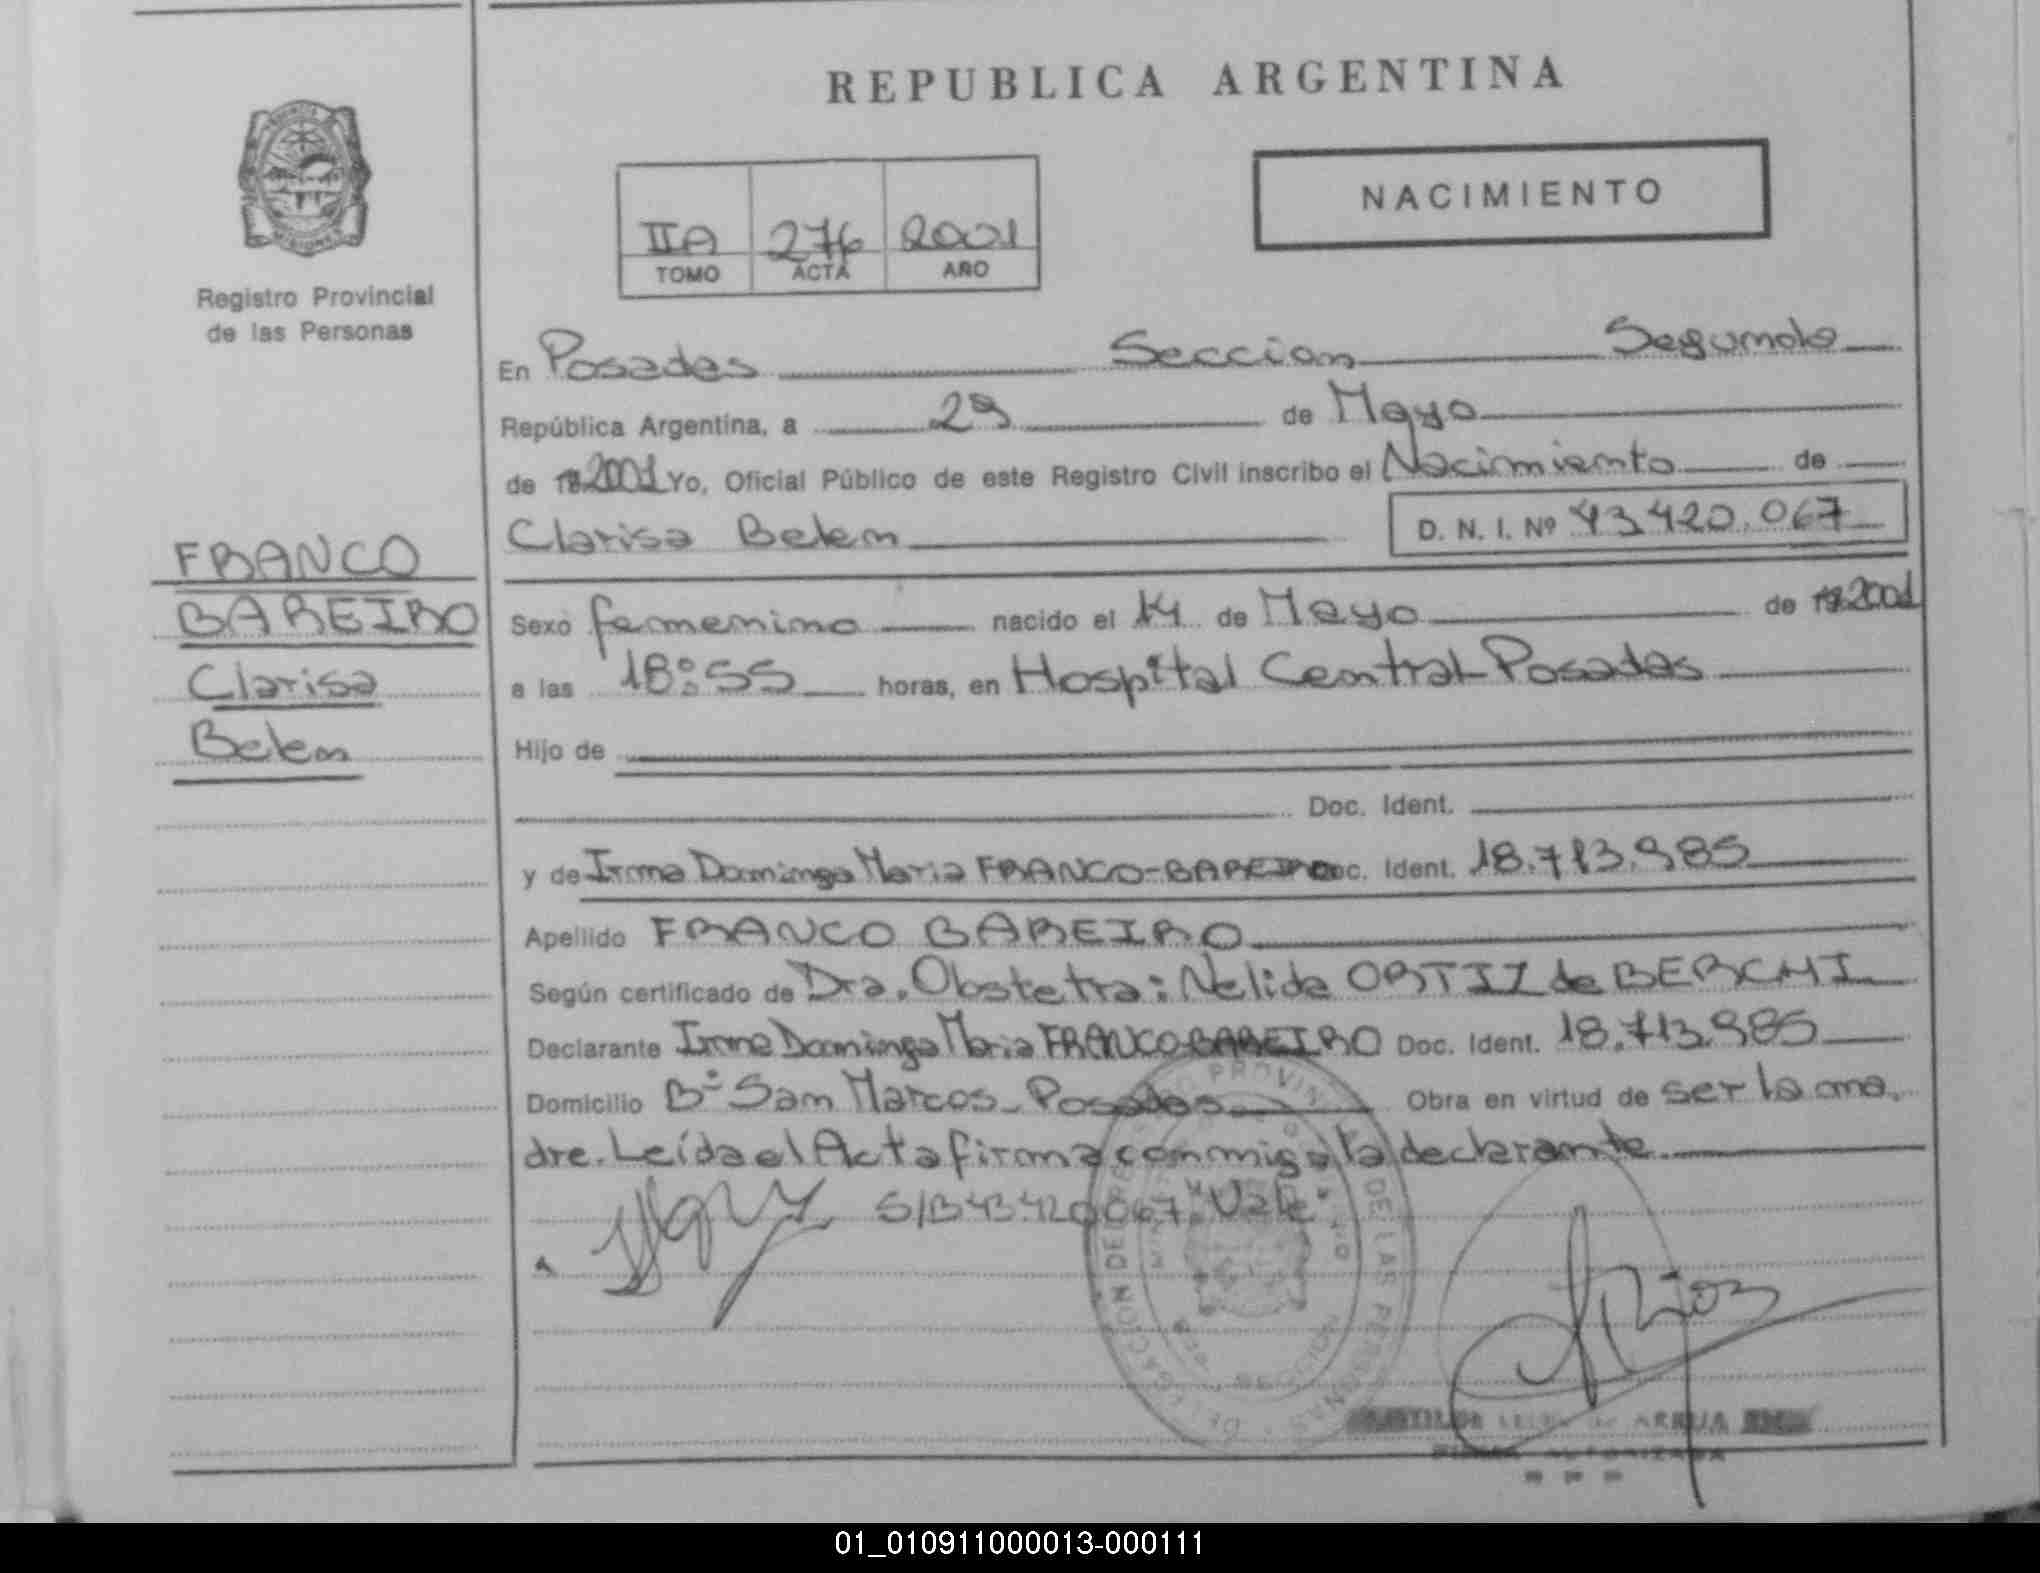 REPUBLICA ARGENTINA
NACIMIENTO
IIA 276 2001
TOMO ACTA AÑO
Registro Provincial
de las Personas
En Posadas Seccion Segunda
República Argentina, a 29 de Mayo
de 19 2001 Yo, Oficial Público de este Registro Civil inscribo el Nacimiento de
Clarisa Belen D. N. I. Nº 43420.067
FRANCO
BAREIRO
Clarisa
Belen
Sexo femenino nacido el 14 de Mayo de 19 2001
a las 18:55 horas, en Hospital Central-Posadas
Hijo de
Doc. Ident.
y de Irma Dominga Maria FRANCO-BAREIRO Doc. Ident. 18.713.985
Apellido FRANCO BAREIRO
Según certificado de Dra. Obstetra: Nelida ORTIZ de BERCHI
Declarante Irma Dominga Maria FRANCO-BAREIRO Doc. Ident. 18.713.985
Domicilio Bº San Marcos - Posadas Obra en virtud de ser la ma.
dre. Leída el Acta firma conmigo la declarante.
S/B 43420067 "Vale"
DELEGACION DE REGISTRO PROVINCIAL DE LAS PERSONAS
ARRUA
FIRMA AUTORIZADA
01_010911000013-000111